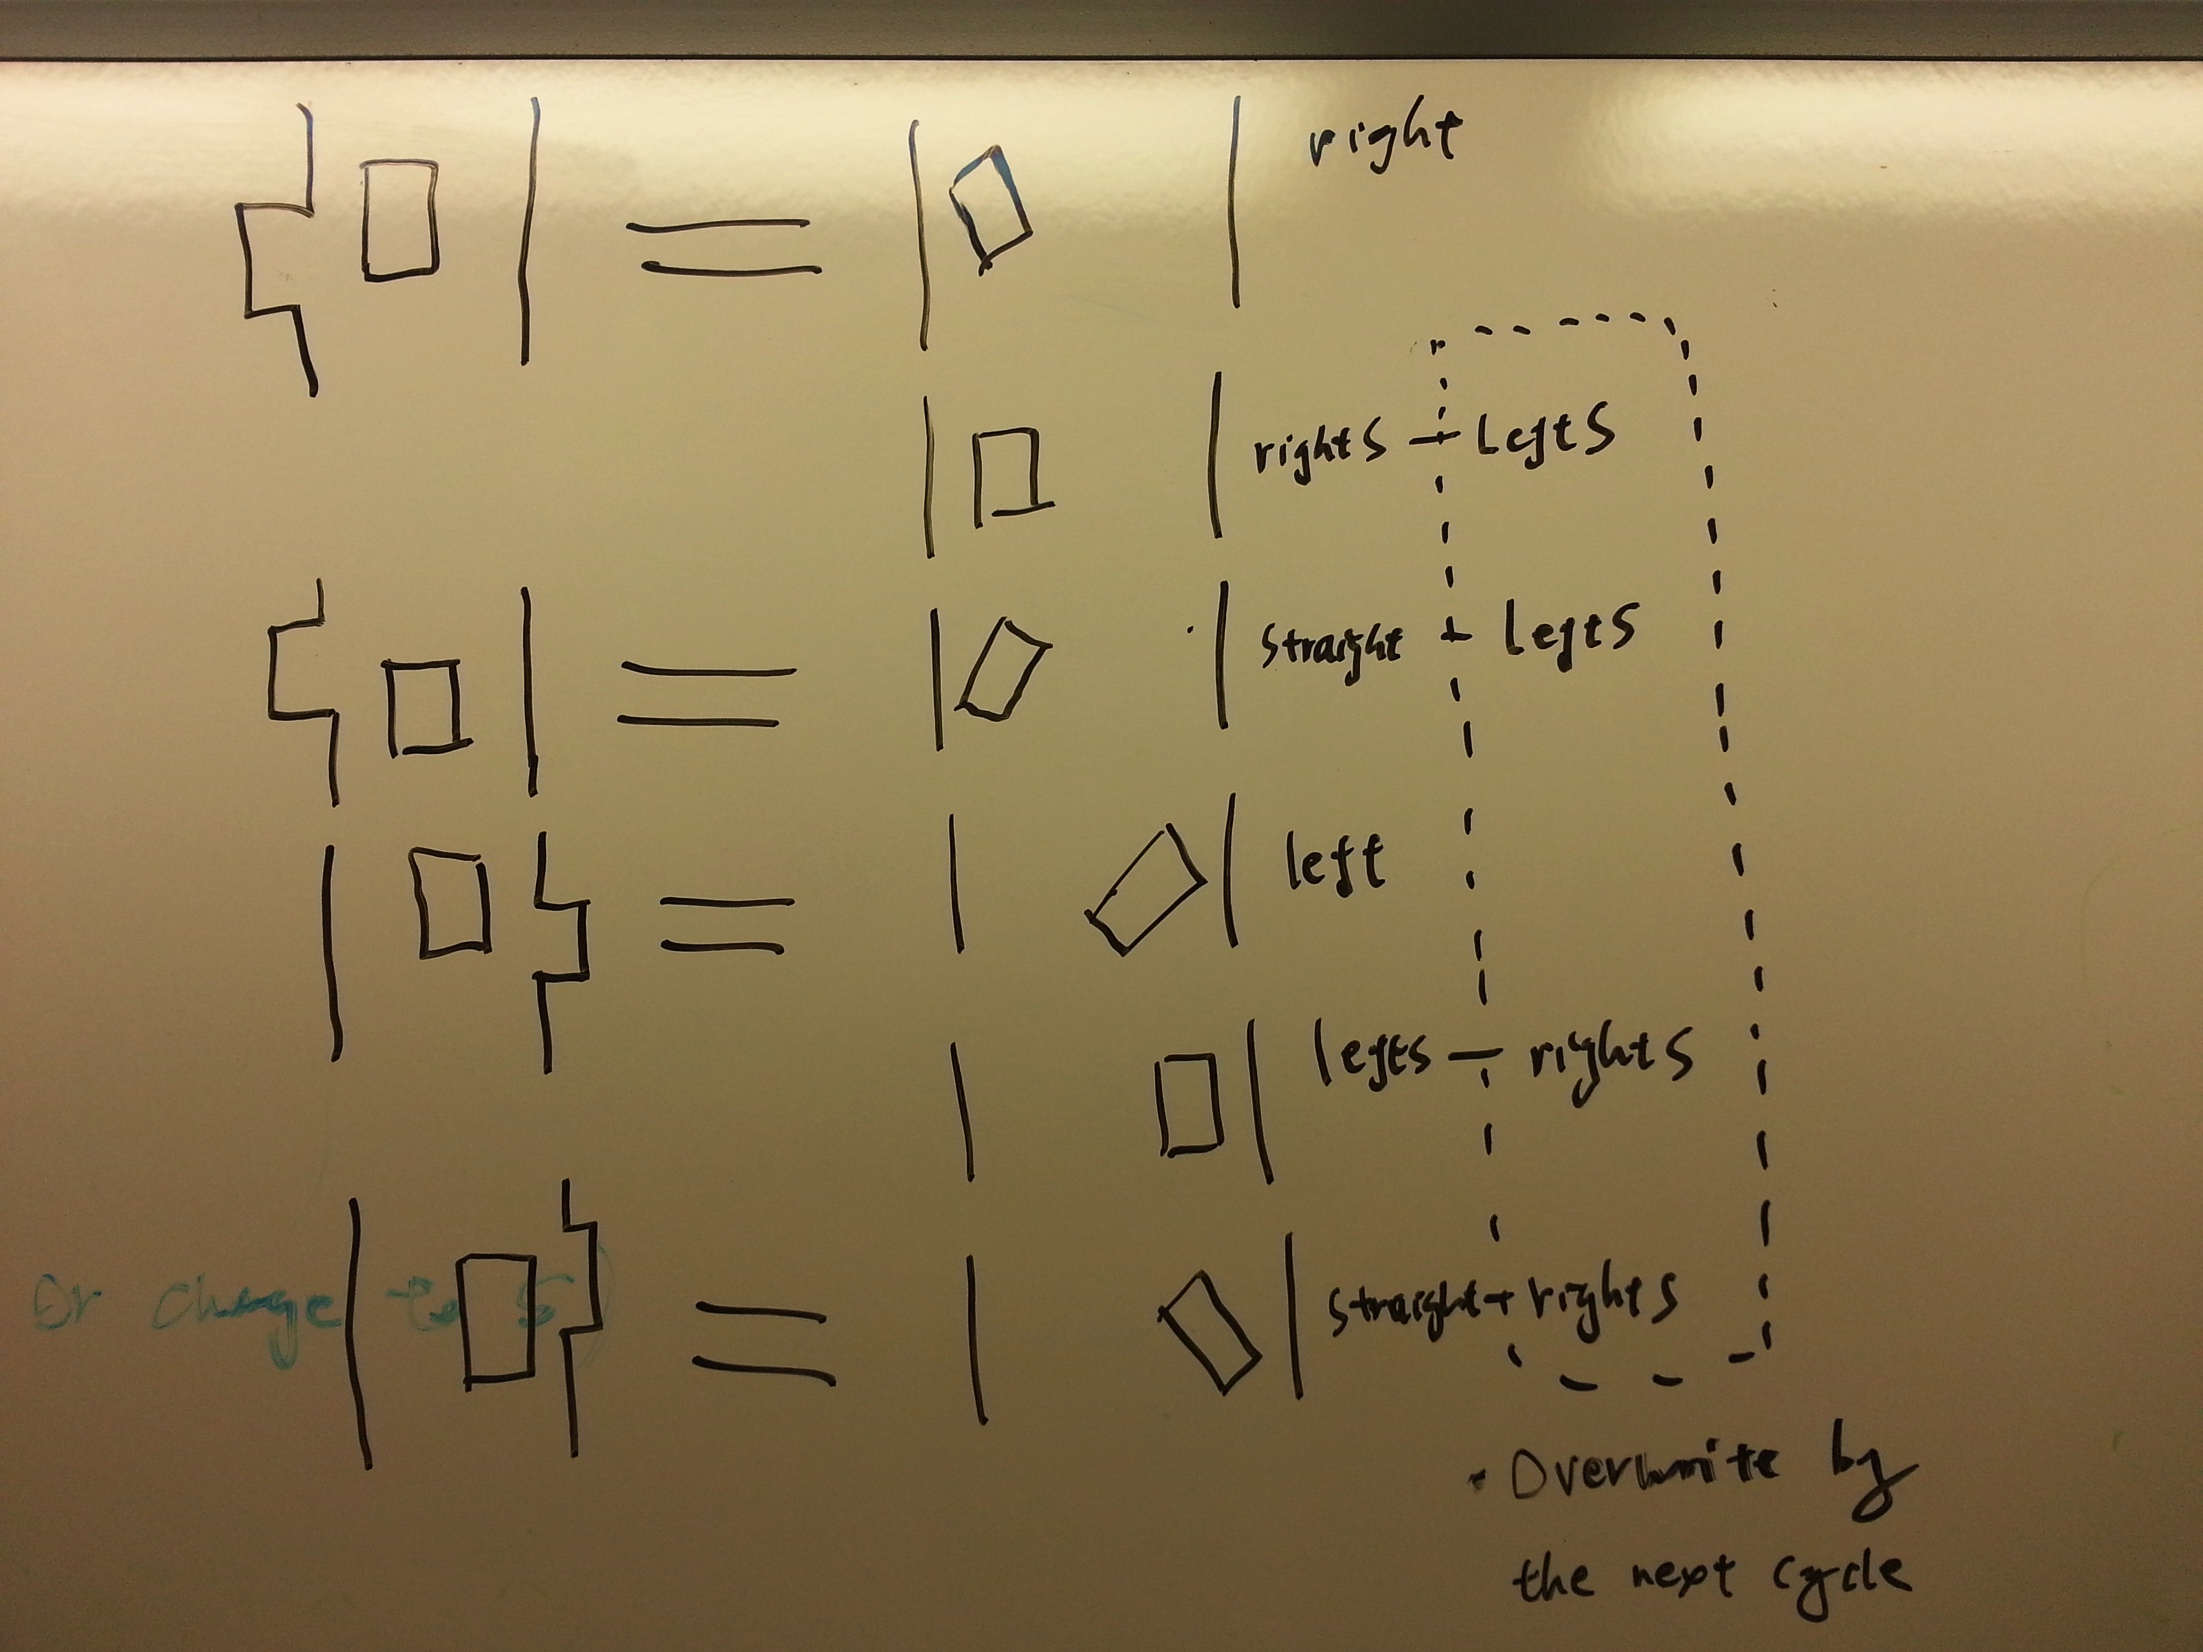 right
rightS + LeftS
Straight + leftS
left
leftS — rightS
Or change to S
Straight + rightS
• Overwrite by
the next cycle